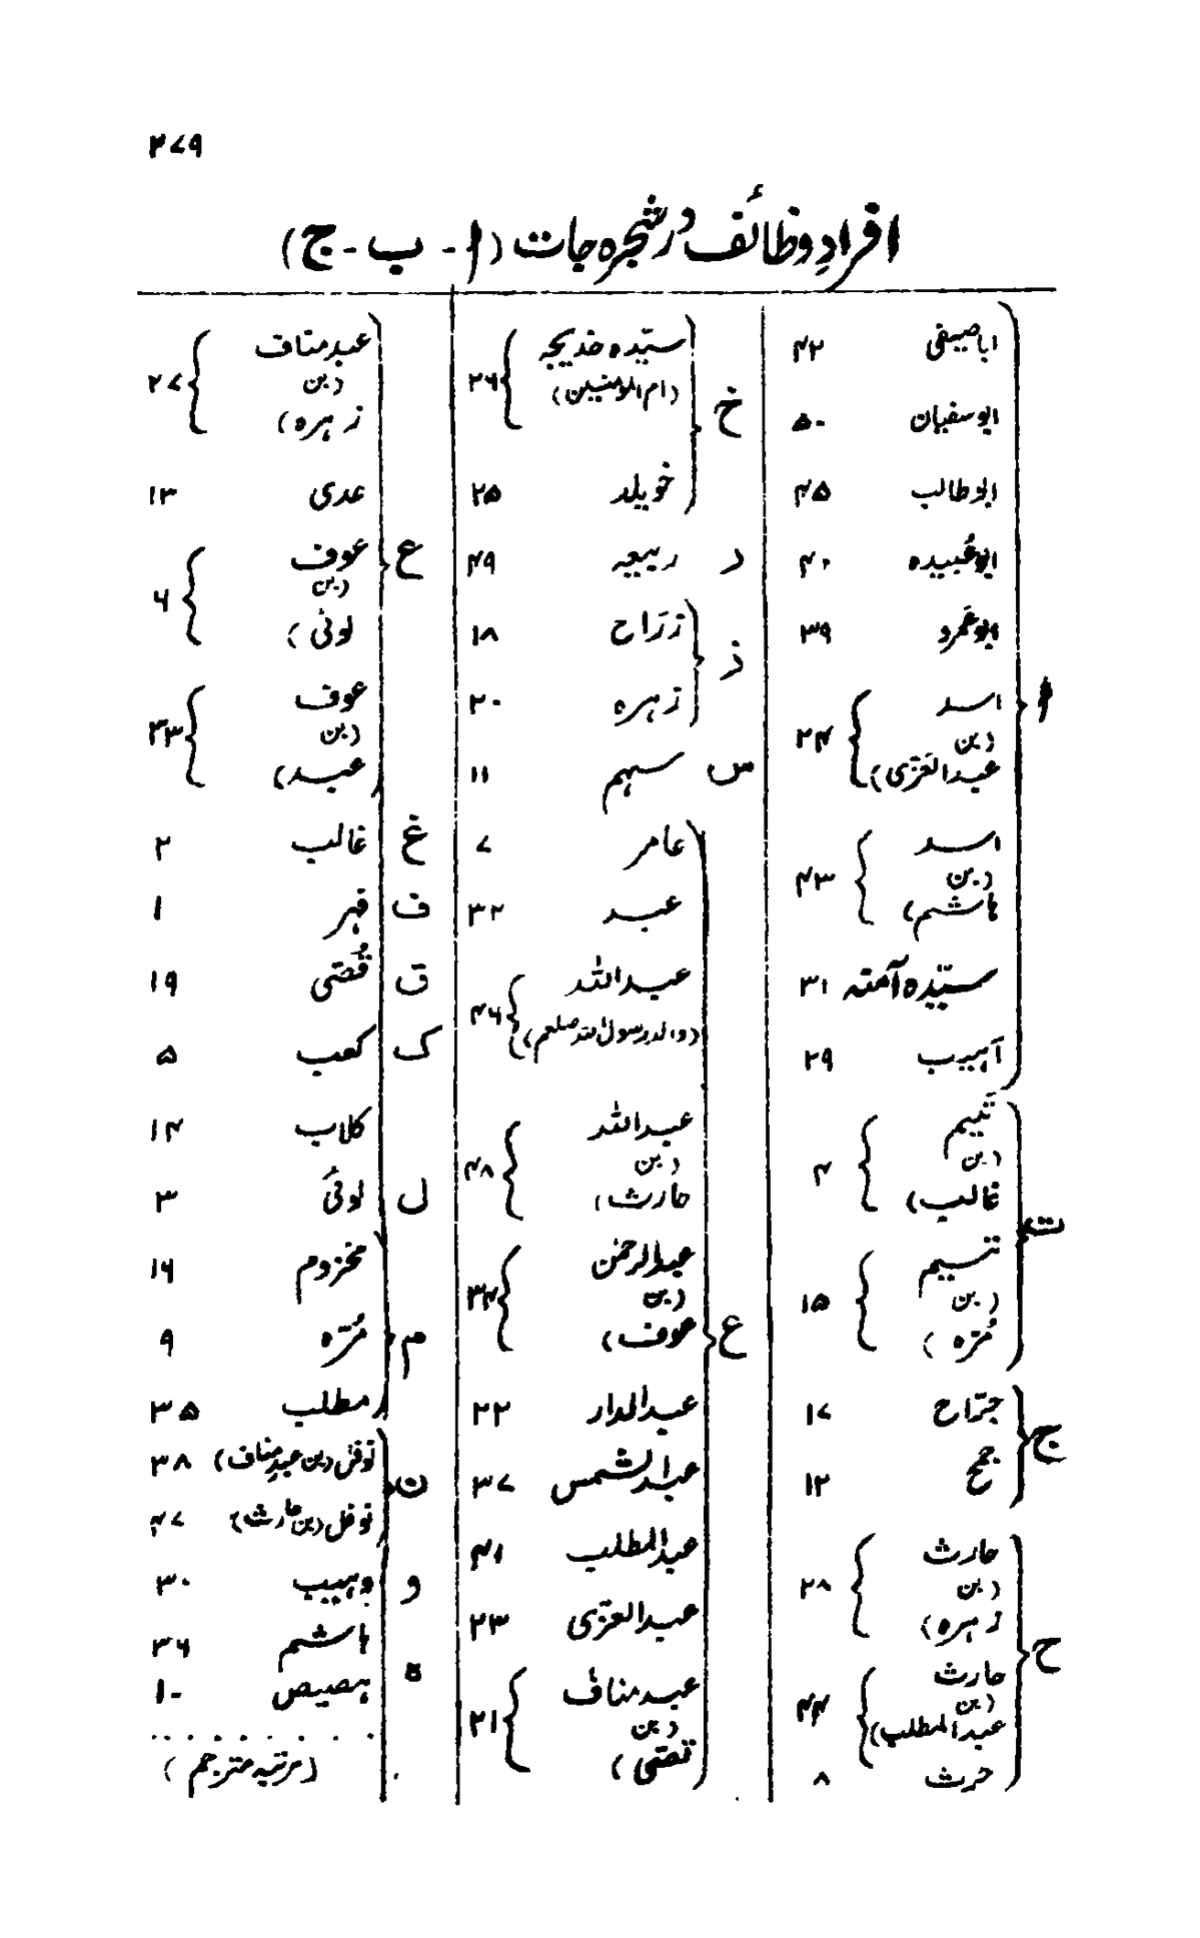 ۴۷۹
افرادِ وظائف در شجرہ جات (ا - ب - ج)
ا
اباصیفی ۴۲
ابوسفیان ۵۰
ابوطالب ۴۵
ابوعُبیدہ ۴۰
ابوعَمرو ۳۹
اسد
(بن
عبدالعزّٰی) ۲۴
اسد
(بن
ہاشم) ۴۳
سیّدہ آمنہ ۳۱
اُہیب ۲۹
ت
تَیم
(بن
غالب) ۴
تیم
(بن
مُرّہ) ۱۵
ج
جرّاح ۱۷
جمح ۱۲
ح
حارث
(بن
زہرہ) ۲۸
حارث
(بن
عبدالمطلب) ۴۴
حرث ۸
خ
سیّدہ خدیجہ
(ام المومنین) ۲۶
خویلد ۲۵
ر
ربیعہ ۴۹
ز
زرَاح ۱۸
زہرہ ۲۰
س
سہم ۱۱
ع
عامر ۷
عبد ۳۲
عبداللہ
(والد رسول اللہ صلعم) ۴۶
عبداللہ
(بن
حارث) ۴۸
عبدالرحمٰن
(بن
عوف) ۳۴
عبدالدار ۲۲
عبدالشمس ۳۷
عبدالمطلب ۴۱
عبدالعزّٰی ۲۳
عبدمناف
(بن
قصّی) ۲۱
ع
عبدمناف
(بن
زہرہ) ۲۷
عدی ۱۳
عوف
(بن
لوئی) ۶
عوف
(بن
عبد) ۳۳
غ
غالب ۲
ف
فہر ۱
ق
قُصّی ۱۹
ک
کعب ۵
کلاب ۱۴
ل
لوئی ۳
م
مخزوم ۱۶
مُرّہ ۹
مطلب ۳۵
ن
نوفل (بن عبدِمناف) ۳۸
نوفل (بن حارث) ۴۷
و
وہیب ۳۰
ہ
ہاشم ۳۶
ہصیص ۱۰
(مرتبہ مترجم)